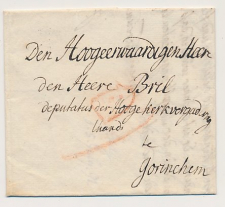 Den Hoogeerwaardigen Heer
den Heere Bril
deputatus der Hooge kerkvergadring
te
Gorinchem